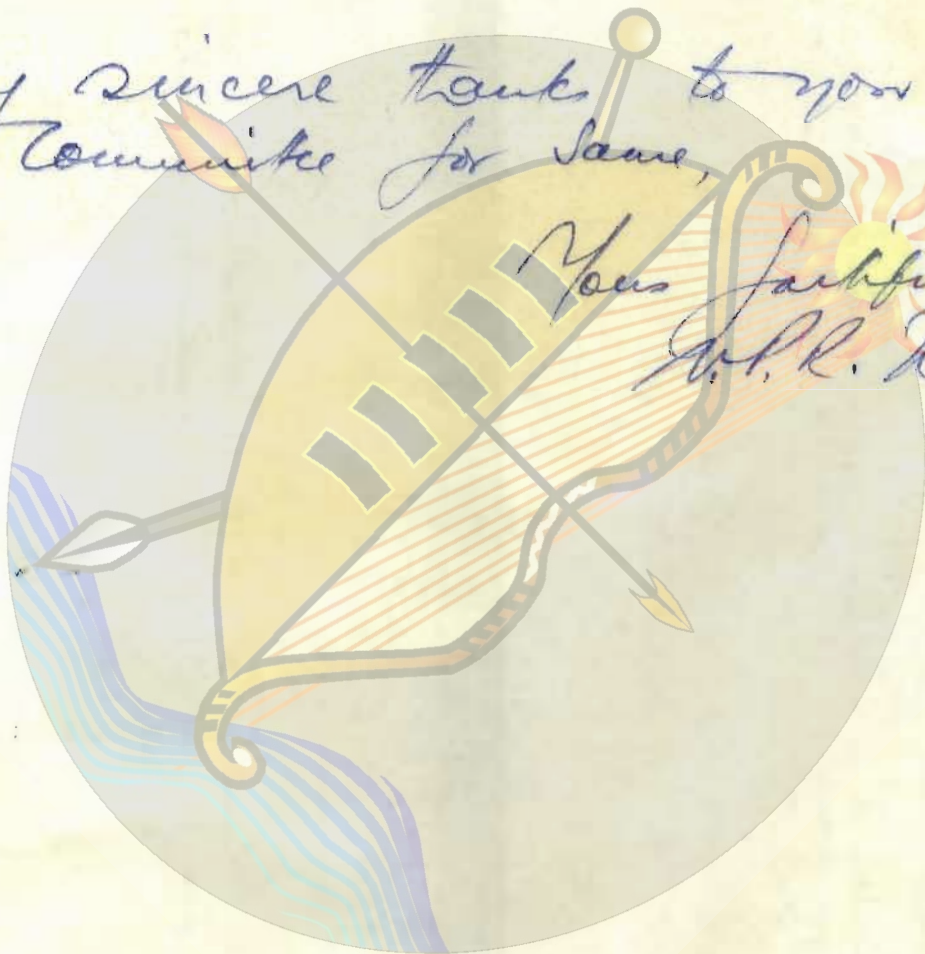 sincere thanks to your
Committee for same,
Yours